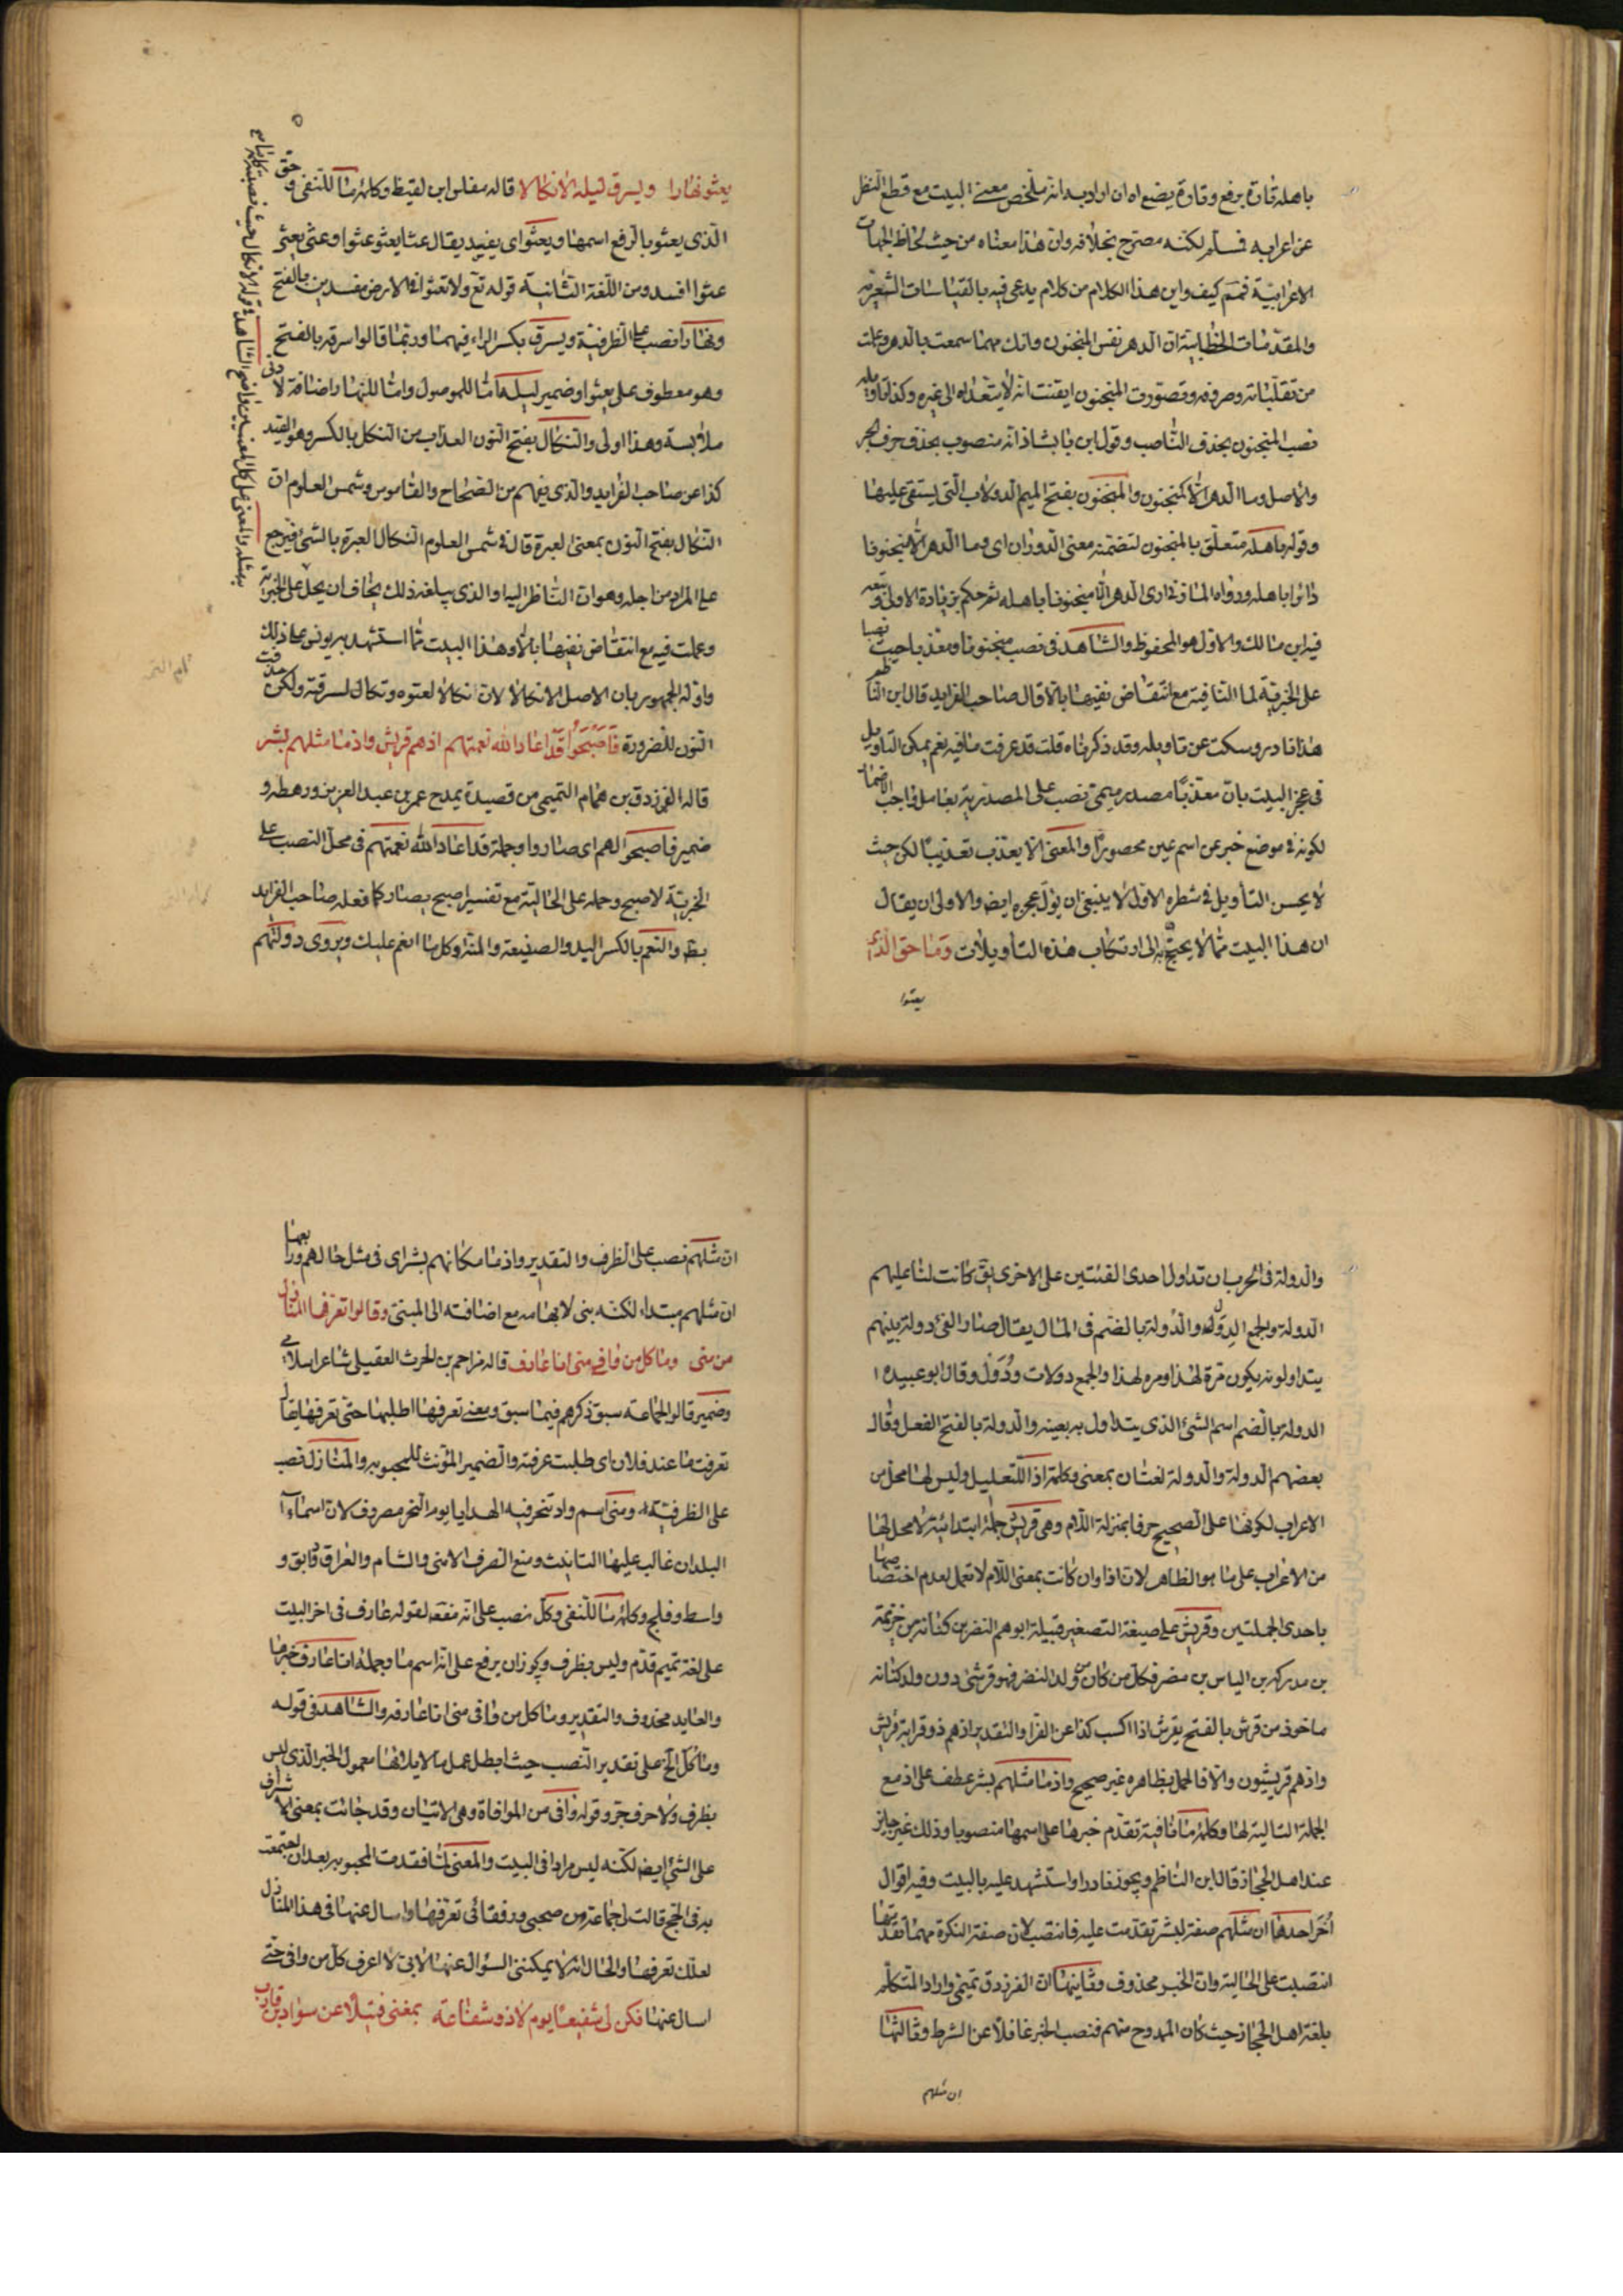 باهله تارة يرفع وتارة يضع اه ان اراد به انه ملخص معنى البيت مع قطع النظر
عن اعرابه فسلم لكنه مصرح بخلافه وان هذا معناه من حيث لحاظ الجهات
الاعرابية فمم كيف واين هذا الكلام من كلام يدعى فيه بالقياسات الشعرية
والمقدمات الخطابية ان الدهر نفس المنجنون وانك مهما سمعت بالدهر وعلمت
من تقلباته وصروفه وتصورت المنجنون ايقنت انه لا يتعداه الى غيره وكذا تاويله
نصب المنجنون بحذف الناصب وقول ابن بابشاذ انه منصوب بحذف حرف الجر
والاصل وما الدهر الا كمنجنون والمنجنون بفتح الميم الدولاب التى يستقى عليها
وقوله باهله متعلق بالمنجنون لتضمنه معنى الدوران اى وما الدهر الا منجنونا
دائرا باهله ورواه المازنى ارى الدهر الا منجنونا باهله ثم حكم بزيادة الا وتبعه
فيه ابن مالك والاول هو المحفوظ والشاهد فى نصب منجنونا ومعذبا حيث نصبا
على الخبرية لما النافية مع انتقاض نفيها بالا قال صاحب الفرايد قال ابن الناظم
هذا نادر وسكت عن تاويله وقد ذكرناه قلت قد عرفت ما فيه نعم يمكن التاويل
فى عجز البيت بان معذبا مصدر ميمى نصب على المصدرية بعامل واجب الاضمار
لكونه فى موضع خبر عن اسم عين محصورا والمعنى الا يعذب تعذيبا لكن حيث
لا يحسن التأويل فى شطره الاول لا ينبغى ان يؤل عجزه ايضا والاولى ان يقال
ان هذا البيت مما لا يحتج به الى ارتكاب هذه التأويلات وما حق الذى
يعثوا
يعثو نهارا ويسرق ليله الا نكالا قاله مغلس ابن لقيط وكلمة ما للنفى وحق
الذى يعثو بالرفع اسمها ويعثو اى يفسد يقال عثا يعثو عثوا وعثى يعثى
عثوا افسد ومن اللغة الثانية قوله تع ولا تعثوا فى الارض مفسدين بالفتح
ونهارا نصب على الظرفية ويسرق بكسر الراء فيهما وربما قالوا سرقه بالفتح
وهو معطوف على يعثوا وضمير ليله اما للموصول واما للنهار واضافة لادنى
ملابسة وهذا اولى والنكال بفتح النون العذاب من النكل بالكسر وهو القيد
كذا عن صاحب الفرايد والذى يفهم من الصحاح والقاموس وشمس العلوم ان
النكال بفتح النون بمعنى العبرة قال فى شمس العلوم النكال العبرة بالشئ فيرجع
على المراد من اجله وهو ان الناظر اليه او الذى يبلغه ذلك يخاف ان يحل على الخبرية
وعملت فيه مع انتقاض نفيها بالا وهذا البيت مما استشهد به يونس على ذلك
واوله الجمهور بان الاصل الا نكالا لان انكالا لعتوه ونكال لسرقته ولكن حذفت
النون للضرورة فاصبحوا قد اعاد الله نعمتهم اذ هم قريش واذ ما مثلهم بشر
قاله الفرزدق بن همام التميمى من قصيدة يمدح عمر بن عبد العزيز ورهطه و
ضمير فاصبحوا لهم اى صاروا وجملة قد اعاد الله نعمتهم فى محل النصب على
الخبرية لاصبح وحمله على الحالية مع تفسير اصبح بصار كما فعله صاحب الفرايد
بط والنعم بالكسر اليد والصنيعة والمنة وكل ما انعم عليك ويروى دولتهم
والدولة فى الحرب ان تداول احدى الفئتين على الاخرى يق كانت لنا عليهم
الدولة والجمع الدول والدولة بالضم فى المال يقال صار الفئ دولة بينهم
يتداولونه يكون مرة لهذا ومرة لهذا والجمع دولات ودول وقال ابو عبيدة
الدولة بالضم اسم الشئ الذى يتداول به بعينه والدولة بالفتح الفعل وقال
بعضهم الدولة والدولة لغتان بمعنى وكلمة اذ للتعليل وليس لها محل من
الاعراب لكونها على الصحيح حرفا بمنزلة اللام وهى قريش جملة ابتدائية لا محل لها
من الاعراب على ما هو الظاهر لان اذ اوان كانت بمعنى اللام لا تعمل لعدم اختصاصها
باحدى الجملتين وقريش على صيغة التصغير قبيلة ابوهم النضر بن كنانه بن خزيمة
بن مدركه بن الياس بن مضر فكل من كان من ولد النضر فهو قرشى دون ولد كنانه
ماخوذ من قرش بالفتح يقرش اذا اكسب كذا عن الفرا والتقدير اذ هم ذو قرابة قريش
واذ هم قريشيون والا فالحمل بظاهره غير صحيح واذ ما مثلهم بشر عطف على اذ مع
الجملة التالية لها وكلمة ما نافية تقدم خبرها على اسمها منصوبا وذلك غير جايز
عند اهل الحجاز قال ابن الناظم ويجوز نادرا واستشهد عليه بالبيت وفيه اقوال
أخر احدها ان مثلهم صفة لبشر تقدمت عليه فانتصب لان صفة النكرة مهما تقدمتها
انتصبت على الحالية وان الخبر محذوف وثانيها ان الفرزدق تميمى واراد التكلم
بلغة اهل الحجاز حيث كان الممدوح منهم فنصب الخبر غافلا عن الشرط وثالثها
ان مثلهم
ان مثلهم نصب على الظرف والتقدير واذ ما مكانهم بشر اى فى مثل حالهم ورابعها
ان مثلهم مبتداء لكنه بنى لابهامه مع اضافته الى المبنى وقالوا تعرفها المنازل
من منى وما كل من وافى منى انا عارف قاله مزاحم بن الحرث العقيلى شاعر اسلامى
وضمير قالوا لجماعة سبق ذكرهم فيما سبق ومعنى تعرفها اطلبها حتى تعرفها يقال
تعرفت ما عند فلان اى طلبت عرفته والضمير المؤنث للمحبوبه والمنازل نصب
على الظرفية ومنى اسم واد تنحر فيه الهدايا يوم النحر مصروف لان اسماء
البلدان غالب عليها التانيث ومنع الصرف الا منى والشام والعراق ودابق و
واسط وفلج وكلمة ما للنفى وكل نصب على انه مفعه لقوله عارف فى اخر البيت
على لغة تميم قدم وليس بظرف ويجوز ان يرفع على انه اسم ما وجملة انا عارف خبرها
والعايد محذوف والتقدير وما كل من وافى منى انا عارفه والشاهد فى قوله
وما كل الخ على تقدير النصب حيث ابطل عمل ما لايلائها معمول الخبر الذى ليس
بظرف ولا حرف جر وقوله وافى من الموافاة وهى الاتيان وقد جائت بمعنى الاشراف
على الشئ ايضا لكنه ليس مرادا فى البيت والمعنى لما فقدت المحبوبه بعد ان اجتمعت
به فى الحج قالت لى جماعة من صحبى ورفقائى تعرفها واسال عنها فى هذا المنازل
لعلك تعرفها والحال انه لا يمكننى السؤال عنها لانى لا اعرف كل من وافى حتى
اسال عنها فكن لى شفيعا يوم لا ذو شفاعة بمغنى فتيلا عن سواد بن قارب